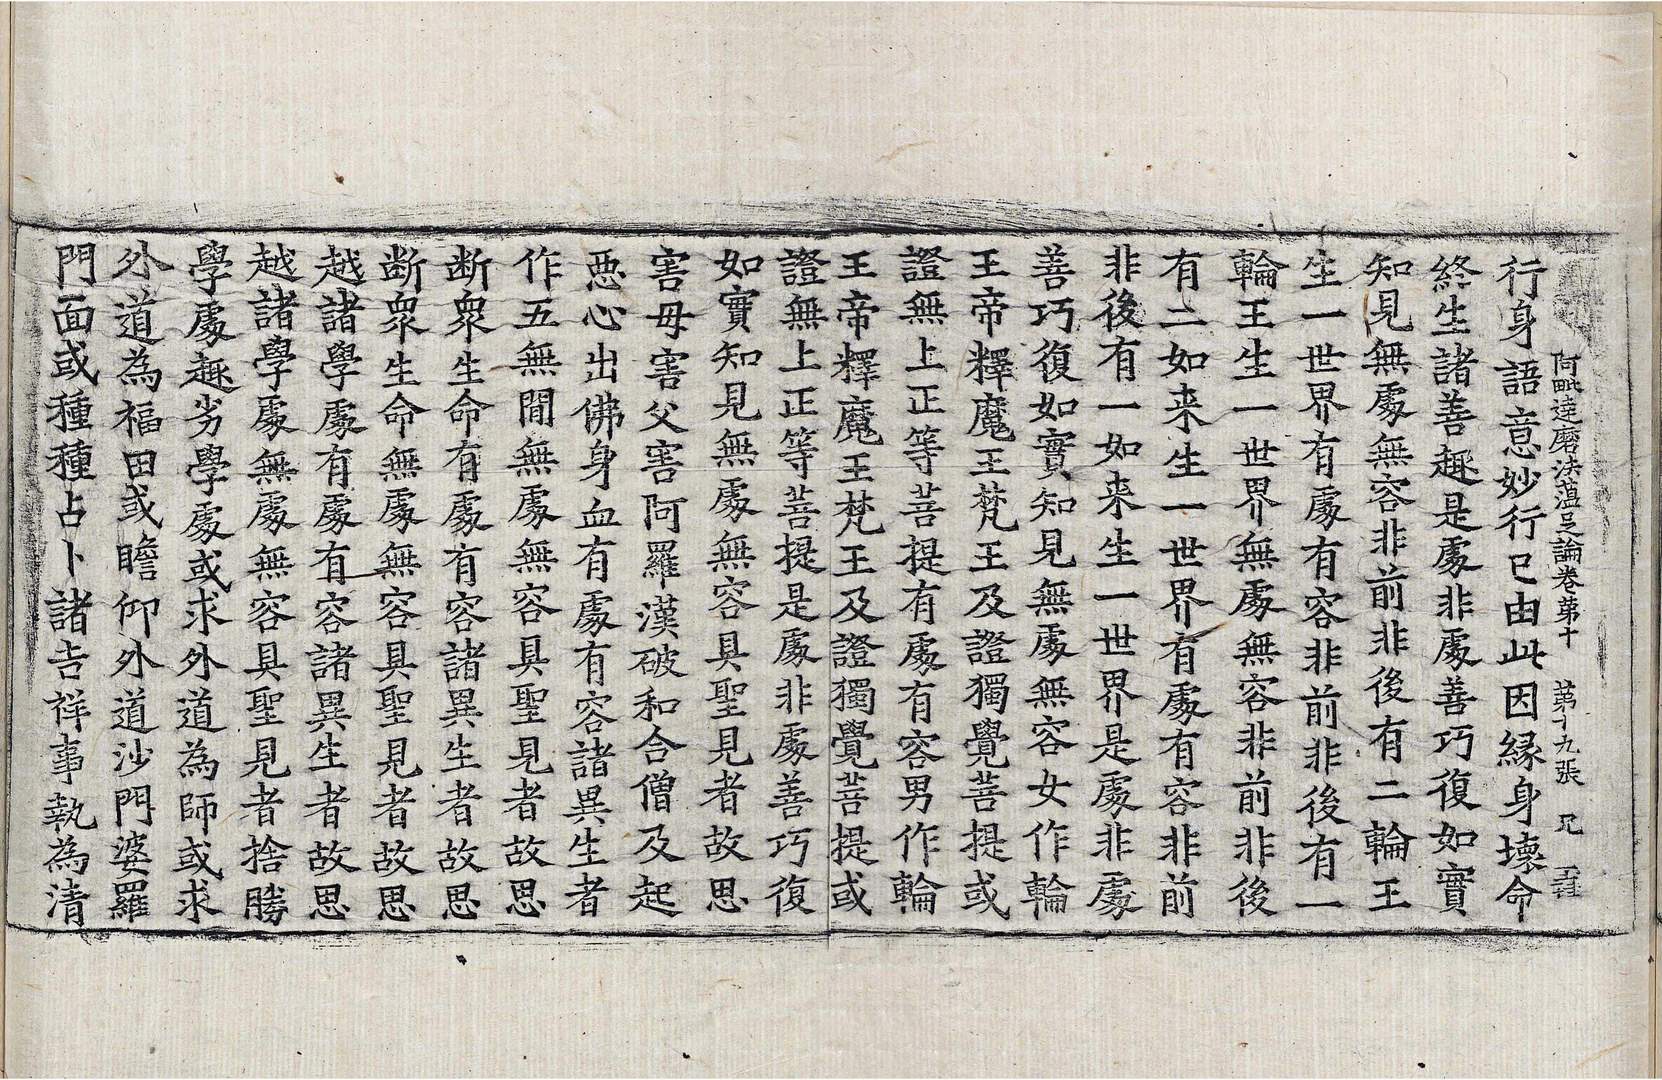 阿毗達磨法蘊足論卷第十 第十九張 兄
行身語意妙行已由此因緣身壞命
終生諸善趣是處非處善巧復如實
知見無處無容非前非後有二輪王
生一世界有處有容非前非後有一
輪王生一世界無處無容非前非後
有二如来生一世界有處有容非前
非後有一如来生一世界是處非處
善巧復如實知見無處無容女作輪
王帝釋魔王梵王及證獨覺菩提或
證無上正等菩提有處有容男作輪
王帝釋魔王梵王及證獨覺菩提或
證無上正等菩提是處非處善巧復
如實知見無處無容具聖見者故思
害母害父害阿羅漢破和合僧及起
惡心出佛身血有處有容諸異生者
作五無間無處無容具聖見者故思
断衆生命有處有容諸異生者故思
断衆生命無處無容具聖見者故思
越諸學處有處有容諸異生者故思
越諸學處無處無容具聖見者捨勝
學處趣劣學處或求外道為師或求
外道為福田或瞻仰外道沙門婆羅
門面或種種占卜諸吉祥事執為清